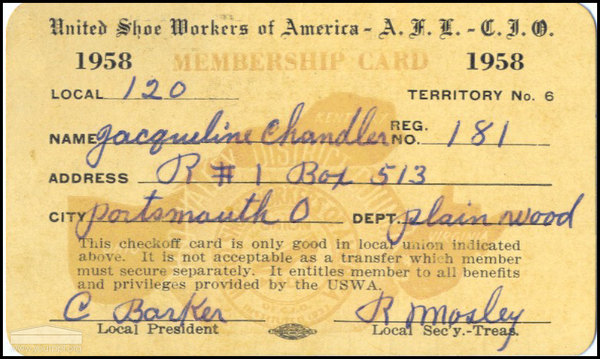 United Shoe Workers of America - A. F. L. - C. I. O.
1958 MEMBERSHIP CARD 1958
LOCAL 120 TERRITORY No. 6
NAME Jacqueline Chandler REG. NO. 181
ADDRESS R #1 Box 513
CITY Portsmouth O DEPT. plain wood
This checkoff card is only good in local union indicated
above. It is not acceptable as a transfer which member
must secure separately. It entitles member to all benefits
and privileges provided by the USWA.
C Barker R Mosley
Local President Local Sec'y.-Treas.